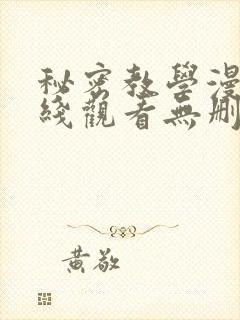 秘密教學漫
綫觀看無刪
黃敬